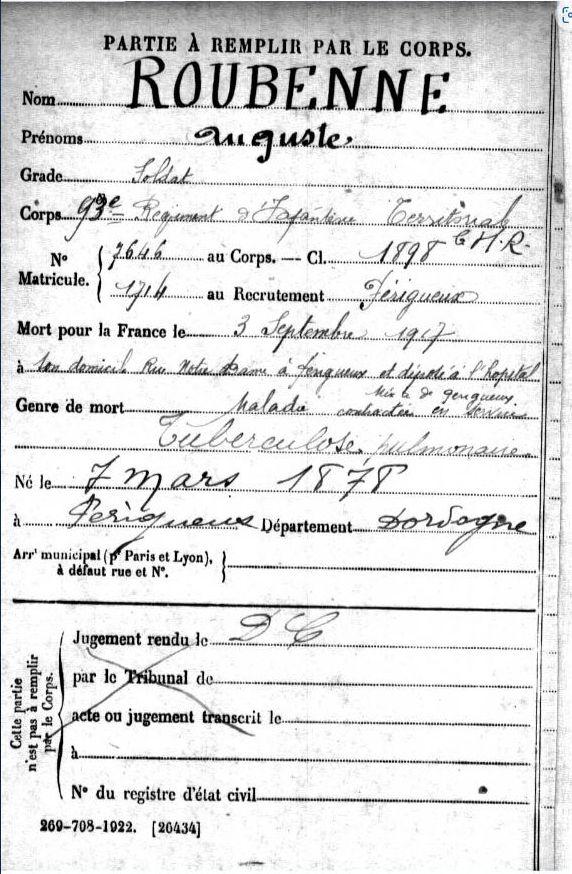 PARTIE À REMPLIR PAR LE CORPS.
Nom ROUBENNE
Prénoms Auguste
Grade Soldat
Corps 93e Régiment d'Infanterie Territorial
C H.R.
N° Matricule. { 7646 au Corps. — Cl. 1898
1714 au Recrutement Périgueux
Mort pour la France le 3 Septembre 1917
à son domicile Rue Notre Dame à Périgueux et déposé à l'hopital
Mixte de Périgueux
Genre de mort Maladie contractée en service
Tuberculose pulmonaire
Né le 7 mars 1878
à Périgueux Département Dordogne
Arrt municipal (pr Paris et Lyon), à défaut rue et N°. }
Cette partie n'est pas à remplir par le Corps. {
Jugement rendu le D C
par le Tribunal de
acte ou jugement transcrit le
à
N° du registre d'état civil
269-708-1922. [26434]